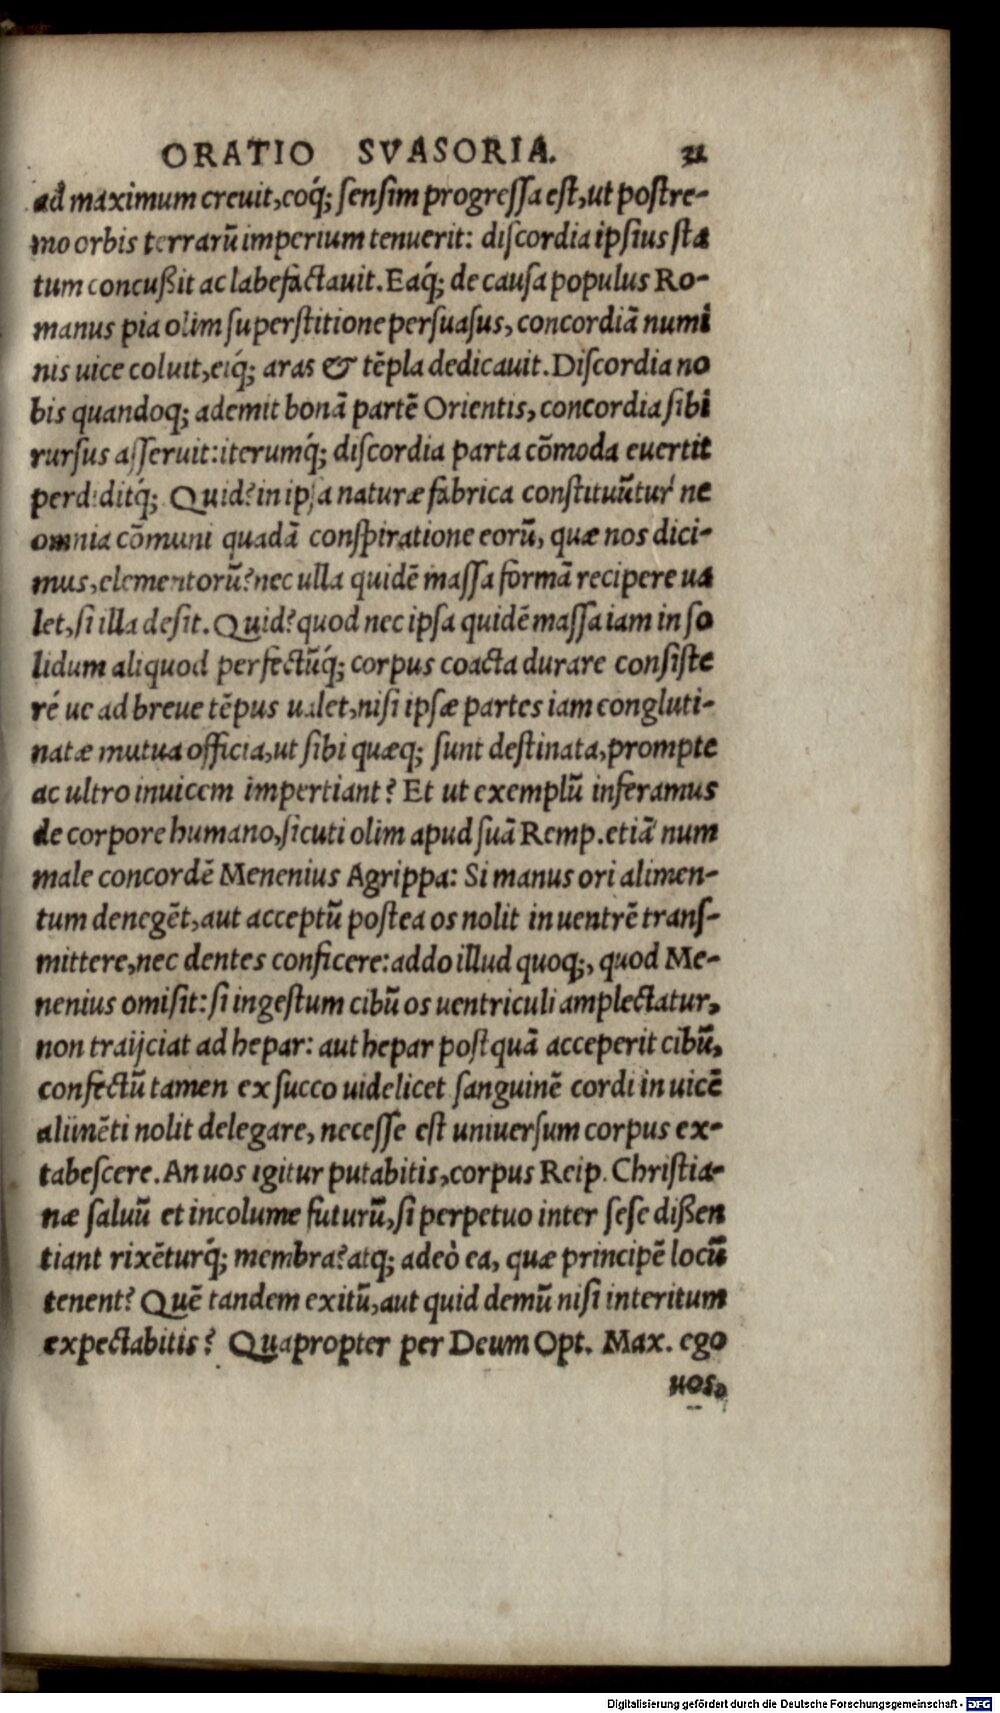 ORATIO SVASORIA. 31
ad maximum creuit, eoq́; ſenſim progreſſa eſt, ut poſtre-
mo orbis terrarū imperium tenuerit: diſcordia ipſius ſta
tum concußit ac labefactauit. Eaq́; de cauſa populus Ro-
manus pia olim ſuperſtitione perſuaſus, concordiā numi
nis uice coluit, eiq́; aras & tēpla dedicauit. Diſcordia no
bis quandoq; ademit bonā partē Orientis, concordia ſibi
rurſus aſſeruit: iterumq́; diſcordia parta cōmoda euertit
perdiditq́; Quid? in ipſa naturæ fabrica conſtituūtur ne
omnia cōmuni quadā conſpiratione eorū, quæ nos dici-
mus, elementorū? nec ulla quidē maſſa formā recipere ua
let, ſi illa deſit. Quid? quod nec ipſa quidē maſſa iam in ſo
lidum aliquod perfectūq́; corpus coacta durare conſiſte
ré ue ad breue tēpus ualet, niſi ipſæ partes iam congluti-
natæ mutua officia, ut ſibi quæq; ſunt deſtinata, prompte
ac ultro inuicem impertiant? Et ut exemplū inferamus
de corpore humano, ſicuti olim apud ſuā Remp. etiā num
male concordē Menenius Agrippa: Si manus ori alimen-
tum denegēt, aut acceptū poſtea os nolit in uentrē tranſ-
mittere, nec dentes conficere: addo illud quoq;, quod Me-
nenius omiſit: ſi ingeſtum cibū os uentriculi amplectatur,
non traijciat ad hepar: aut hepar poſtquā acceperit cibū,
confectū tamen ex ſucco uidelicet ſanguinē cordi in uicē
alimēti nolit delegare, neceſſe eſt uniuerſum corpus ex-
tabeſcere. An uos igitur putabitis, corpus Reip. Chriſtia-
næ ſaluū et incolume futurū, ſi perpetuo inter ſeſe dißen
tiant rixēturq́; membra? atq; adeò ea, quæ principē locū
tenent? Quē tandem exitū, aut quid demū niſi interitum
expectabitis? Quapropter per Deum Opt. Max. ego
uos,
Digitalisierung gefördert durch die Deutsche Forschungsgemeinschaft - DFG